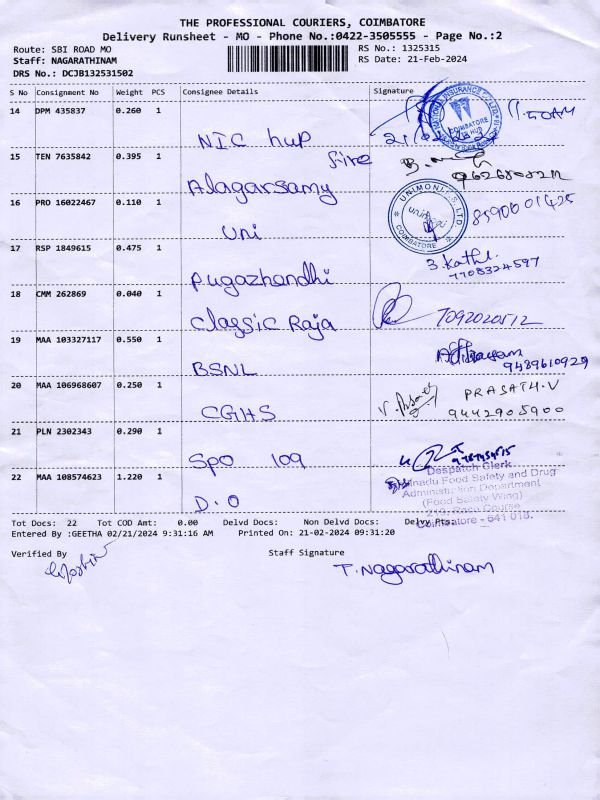 THE PROFESSIONAL COURIERS, COIMBATORE
Delivery Runsheet - MO - Phone No.:0422-3505555 - Page No.:2
Route: SBI ROAD MO
RS No.: 1325315
Staff: NAGARATHINAM
RS Date: 21-Feb-2024
DRS No.: DCJB132531502
S No Consignment No Weight PCS Consignee Details Signature
14 DPM 435837 0.260 1
NIC hup
11.50AM
15 TEN 7635842 0.395 1
fire
Alagarsamy
16 PRO 16022467 0.110 1
uni
UNIMONI
COIMBATORE
8590601425
17 RSP 1849615 0.475 1
Pugazhandhi
7708324597
18 CMM 262869 0.040 1
Classic Raja
7092020512
19 MAA 103327117 0.550 1
BSNL
9489610929
20 MAA 106968607 0.250 1
CGHS
PRASATH.V
9442905900
21 PLN 2302343 0.290 1
SPO 109
22 MAA 108574623 1.220 1
D.O
Despatch Clerk
Food Safety and Drug
Administration Department
(Food Safety Wing)
Race Course
Coimbatore - 641 018.
Tot Docs: 22 Tot COD Amt: 0.00 Delvd Docs: Non Delvd Docs: Delvy Pts:
Entered By :GEETHA 02/21/2024 9:31:16 AM Printed On: 21-02-2024 09:31:20
Verified By
Staff Signature
T. Nagarathinam